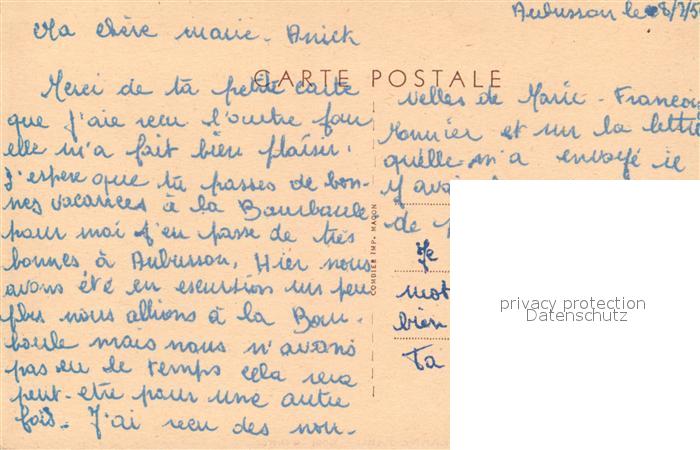 Aubusson le 8/7/5
Ma chère marie-Anick
CARTE POSTALE
Merci de ta petite carte
que j'aie recu l'outre four
elle m'a fait bien plaisir.
J'espere que tu passes de bon-
nes vacances à la Bourboule
pour moi j'en passe de très
bonnes à Aubusson. Hier nous
avons été en escursion un peu
plus nous allions à la Bour-
boule mais nous n'avons
pas eu le temps cela sera
peut-etre pour une autre
fois. J'ai recu des nou-
velles de Marie-François
Monnier et sur la lettre
qu'elle m'a envoyé ie
y avai
de
Je
mot
bien
Ta
COMBIER IMP. MACON
privacy protection
Datenschutz